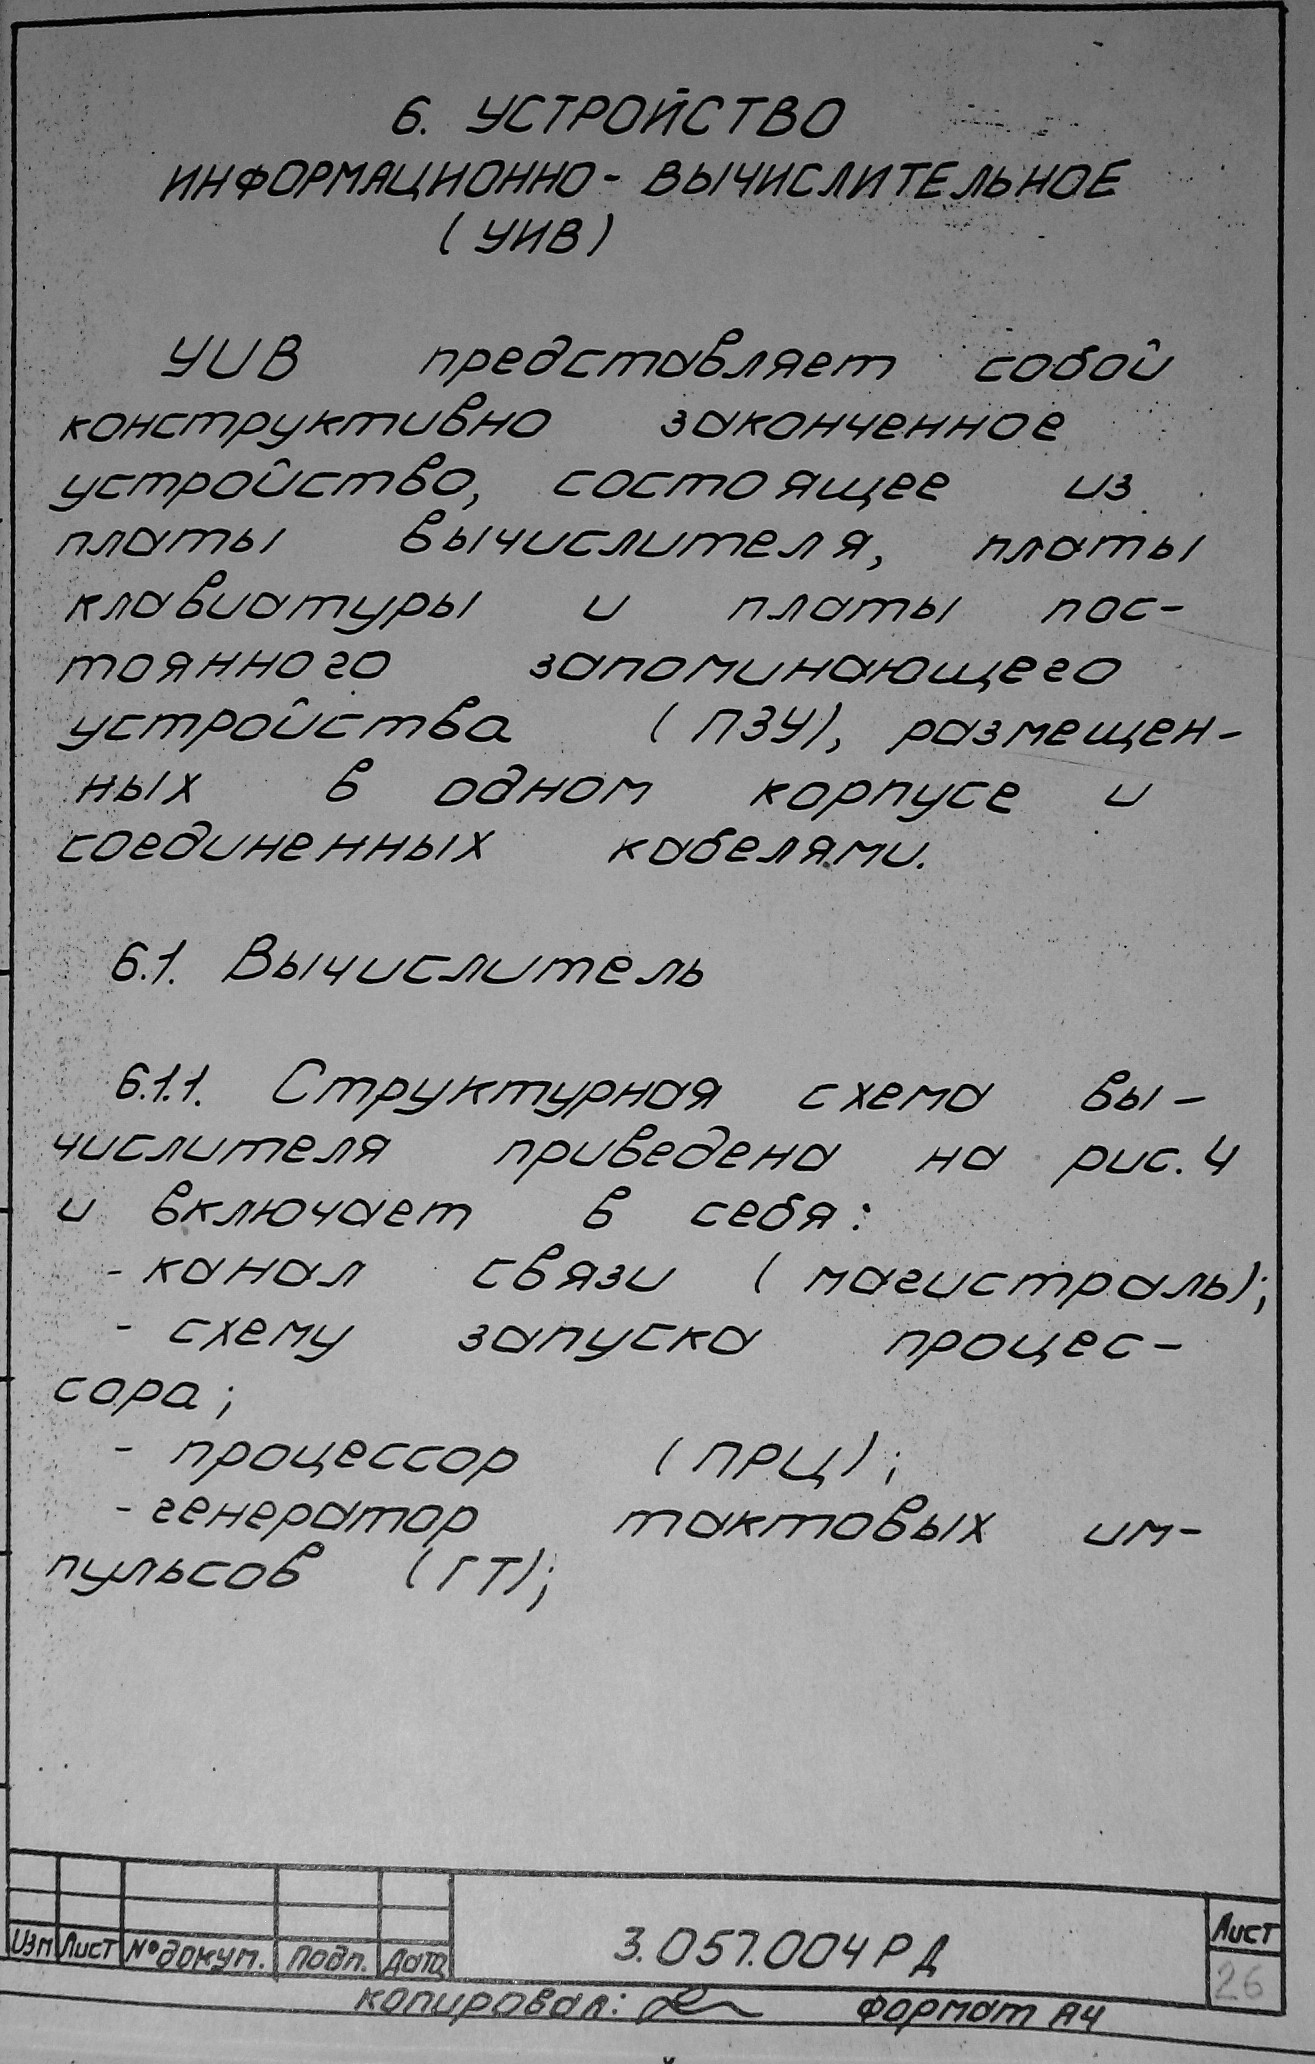 6. УСТРОЙСТВО
ИНФОРМАЦИОННО - ВЫЧИСЛИТЕЛЬНОЕ
(УИВ)
УИВ представляет собой
конструктивно законченное
устройство, состоящее из
платы вычислителя, платы
клавиатуры и платы пос-
тоянного запоминающего
устройства (ПЗУ), размещен-
ных в одном корпусе и
соединенных кабелями.
6.1. Вычислитель
6.1.1. Структурная схема вы-
числителя приведена на рис. 4
и включает в себя:
- канал связи (магистраль);
- схему запуска процес-
сора;
- процессор (ПРЦ);
- генератор тактовых им-
пульсов (ГТ);
Изм Лист № докум. Подп. Дата
3.057.004 РД
Лист
26
Копировал: Формат А4